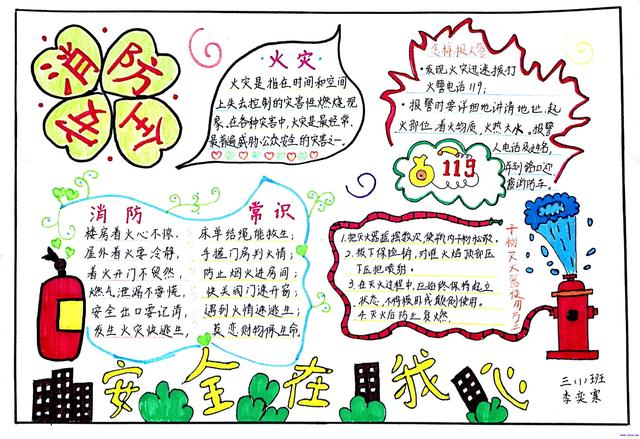 消防
安全
火灾
火灾是指在时间和空间
上失去控制的灾害性燃烧现
象,在各种灾害中,火灾是最经常、
最普遍威胁公众安全的灾害之一。
怎样报火警
·发现火灾迅速拨打
火警电话119;
·报警时要详细地讲清地址、起
火部位、着火物质、火势大小、报警
人电话及姓名,
并到路口迎
接消防车。
119
消防 常识
楼房着火心不惊,
屋外着火要冷静,
着火开门不贸然,
燃气泄漏不要慌,
安全出口要记清,
发生火灾快逃生,
床单结绳能救生;
手握门房判火情;
防止烟火进房间;
快关阀门速开窗;
遇到火情速逃生;
莫恋财物保生命。
1.把灭火器摇摇数次,使瓶内干粉松散。
2.拔下保险销,对准火焰顶部压
下压把喷射。
3.在灭火过程中,应始终保持起立
状态,不得横用或颠倒使用。
4.灭火后防止复燃。
干粉灭火器使用方法
安全在我心
三(1)班
李奕寒